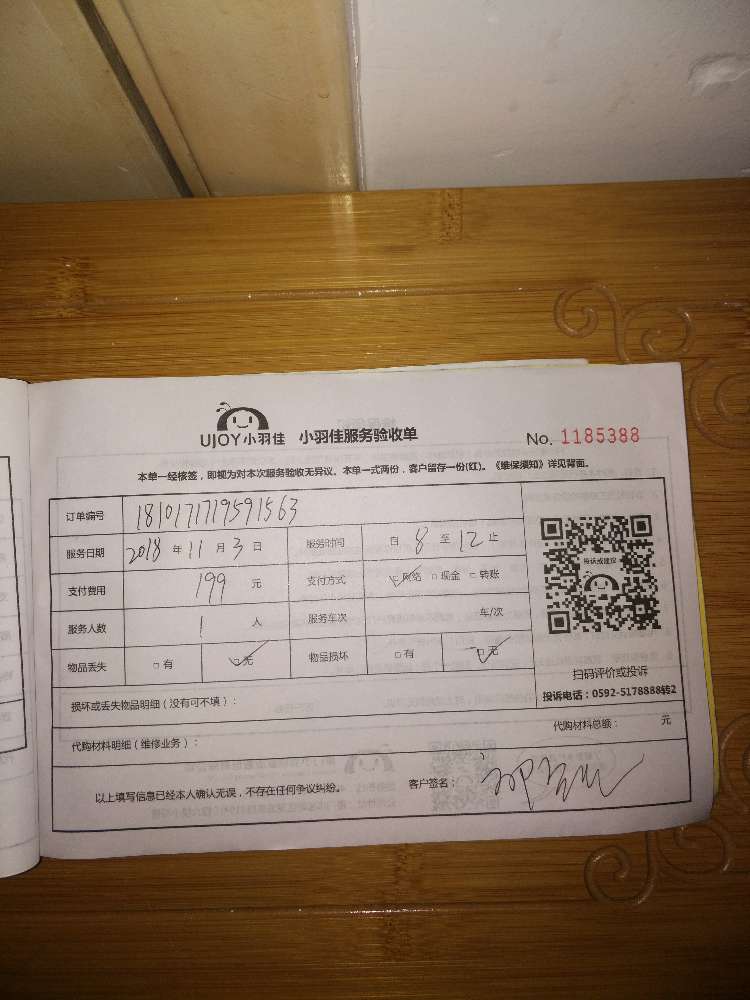 UJOY小羽佳 小羽佳服务验收单 No. 1185388
本单一经核签，即视为对本次服务验收无异议。本单一式两份，客户留存一份(红)。《维保须知》详见背面。
订单编号 181017171959 1563
服务日期 2018 年 11 月 3 日 服务时间 自 8 至 12 止
投诉或建议
支付费用 199 元 支付方式 ☑网络 □现金 □转账
服务人数 1 人 服务车次 车/次
物品丢失 □有 ☑无 物品损坏 □有 ☑无
扫码评价或投诉
投诉电话：0592-5178888转2
损坏或丢失物品明细（没有可不填）：
代购材料明细（维修业务）： 代购材料总额： 元
以上填写信息已经本人确认无误，不存在任何争议纠纷。 客户签名：